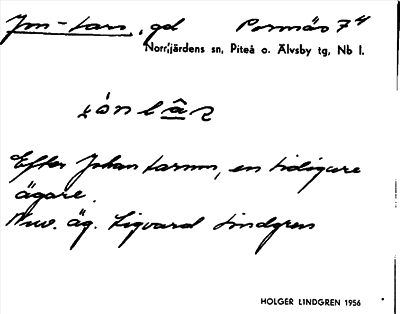 Jon-Lars, gd Porsnäs 7⁴
Norrfjärdens sn, Piteå o. Älvsby tg, Nb l.
Efter Johan Larson, en tidigare
ägare.
Nuv. äg. Sigvard Lindgren
HOLGER LINDGREN 1956